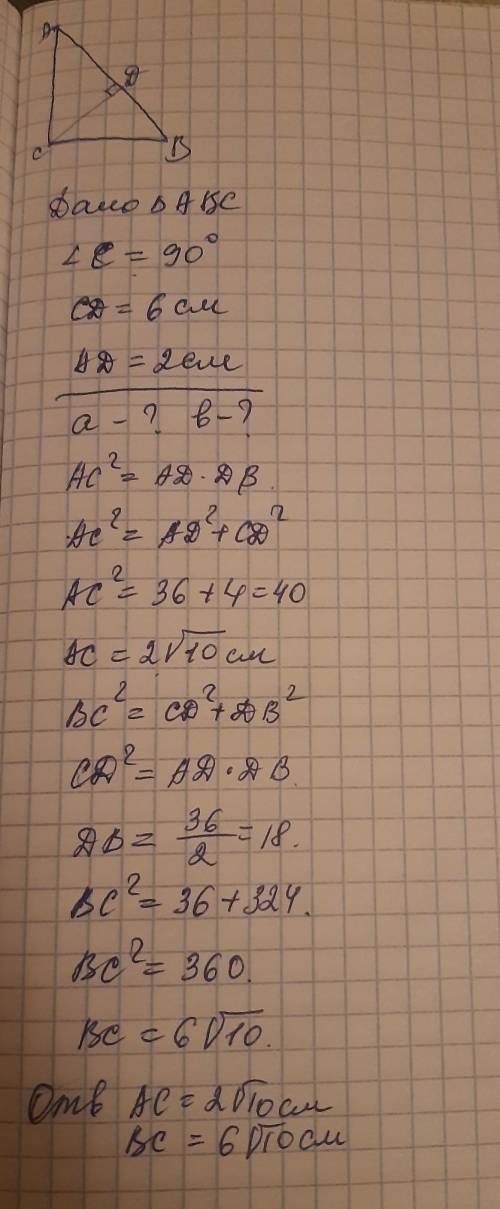 A
D
C
B
Дано Δ ABC
∠C = 90°
CD = 6 см
AD = 2 см
a - ? b - ?
AC² = AD · DB.
AC² = AD² + CD²
AC² = 36 + 4 = 40
AC = 2√10 см
BC² = CD² + DB²
CD² = AD · DB.
DB = 36/2 = 18.
BC² = 36 + 324.
BC² = 360.
BC = 6√10.
Отв AC = 2√10 см
BC = 6√10 см